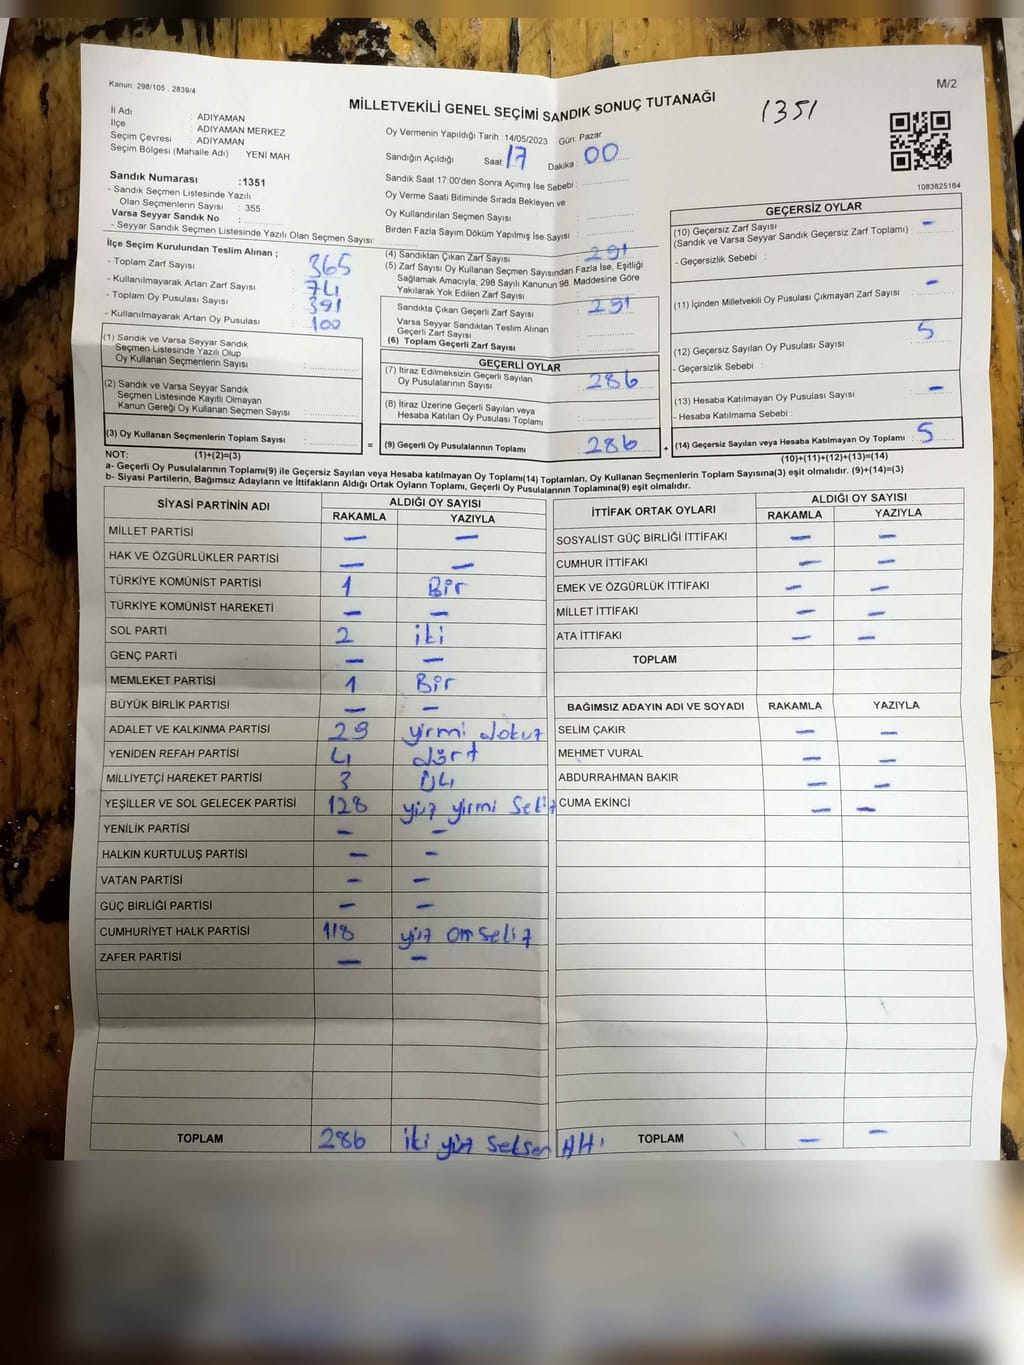 Kanun: 298/105 , 2839/4
M/2
MİLLETVEKİLİ GENEL SEÇİMİ SANDIK SONUÇ TUTANAĞI
1351
İl Adı : ADIYAMAN
İlçe : ADIYAMAN MERKEZ
Seçim Çevresi : ADIYAMAN
Seçim Bölgesi (Mahalle Adı) : YENİ MAH
Sandık Numarası :1351
- Sandık Seçmen Listesinde Yazılı
Olan Seçmenlerin Sayısı : 355
Varsa Seyyar Sandık No :
- Seyyar Sandık Seçmen Listesinde Yazılı Olan Seçmen Sayısı:
Oy Vermenin Yapıldığı Tarih :14/05/2023 Gün: Pazar
Sandığın Açıldığı Saat: 17 Dakika : 00
Sandık Saat 17:00'den Sonra Açımış İse Sebebi :
Oy Verme Saati Bitiminde Sırada Bekleyen ve
Oy Kullandırılan Seçmen Sayısı :
Birden Fazla Sayım Döküm Yapılmış İse Sayısı :
1083825164
İlçe Seçim Kurulundan Teslim Alınan ;
- Toplam Zarf Sayısı : 365
- Kullanılmayarak Artan Zarf Sayısı : 74
- Toplam Oy Pusulası Sayısı : 391
- Kullanılmayarak Artan Oy Pusulası : 100
(1) Sandık ve Varsa Seyyar Sandık
Seçmen Listesinde Yazılı Olup
Oy Kullanan Seçmenlerin Sayısı :
(2) Sandık ve Varsa Seyyar Sandık
Seçmen Listesinde Kayıtlı Olmayan
Kanun Gereği Oy Kullanan Seçmen Sayısı :
(3) Oy Kullanan Seçmenlerin Toplam Sayısı :
(4) Sandıktan Çıkan Zarf Sayısı : 291
(5) Zarf Sayısı Oy Kullanan Seçmen Sayısından Fazla İse, Eşitliği
Sağlamak Amacıyla; 298 Sayılı Kanunun 98. Maddesine Göre
Yakılarak Yok Edilen Zarf Sayısı :
Sandıkta Çıkan Geçerli Zarf Sayısı : 291
Varsa Seyyar Sandıktan Teslim Alınan
Geçerli Zarf Sayısı :
(6) Toplam Geçerli Zarf Sayısı :
GEÇERLİ OYLAR
(7) İtiraz Edilmeksizin Geçerli Sayılan
Oy Pusulalarının Sayısı : 286
(8) İtiraz Üzerine Geçerli Sayılan veya
Hesaba Katılan Oy Pusulası Toplamı :
= (9) Geçerli Oy Pusulalarının Toplamı : 286 +
GEÇERSİZ OYLAR
(10) Geçersiz Zarf Sayısı : -
(Sandık ve Varsa Seyyar Sandık Geçersiz Zarf Toplamı)
- Geçersizlik Sebebi :
(11) İçinden Milletvekili Oy Pusulası Çıkmayan Zarf Sayısı : -
(12) Geçersiz Sayılan Oy Pusulası Sayısı : 5
- Geçersizlik Sebebi :
(13) Hesaba Katılmayan Oy Pusulası Sayısı : -
- Hesaba Katılmama Sebebi :
(14) Geçersiz Sayılan veya Hesaba Katılmayan Oy Toplamı : 5
NOT: (1)+(2)=(3) (10)+(11)+(12)+(13)=(14)
a- Geçerli Oy Pusulalarının Toplamı(9) ile Geçersiz Sayılan veya Hesaba katılmayan Oy Toplamı(14) Toplamları, Oy Kullanan Seçmenlerin Toplam Sayısına(3) eşit olmalıdır. (9)+(14)=(3)
b- Siyasi Partilerin, Bağımsız Adayların ve İttifakların Aldığı Ortak Oyların Toplamı, Geçerli Oy Pusulalarının Toplamına(9) eşit olmalıdır.
SİYASİ PARTİNİN ADI ALDIĞI OY SAYISI
RAKAMLA YAZIYLA
MİLLET PARTİSİ - -
HAK VE ÖZGÜRLÜKLER PARTİSİ - -
TÜRKİYE KOMÜNİST PARTİSİ 1 Bir
TÜRKİYE KOMÜNİST HAREKETİ - -
SOL PARTİ 2 iki
GENÇ PARTİ - -
MEMLEKET PARTİSİ 1 Bir
BÜYÜK BİRLİK PARTİSİ - -
ADALET VE KALKINMA PARTİSİ 29 yirmi dokuz
YENİDEN REFAH PARTİSİ 4 dört
MİLLİYETÇİ HAREKET PARTİSİ 3 Üç
YEŞİLLER VE SOL GELECEK PARTİSİ 128 yüz yirmi Sekiz
YENİLİK PARTİSİ - -
HALKIN KURTULUŞ PARTİSİ - -
VATAN PARTİSİ - -
GÜÇ BİRLİĞİ PARTİSİ - -
CUMHURİYET HALK PARTİSİ 118 yüz on Sekiz
ZAFER PARTİSİ - -
TOPLAM 286 iki yüz Seksen Altı
İTTİFAK ORTAK OYLARI ALDIĞI OY SAYISI
RAKAMLA YAZIYLA
SOSYALİST GÜÇ BİRLİĞİ İTTİFAKI - -
CUMHUR İTTİFAKI - -
EMEK VE ÖZGÜRLÜK İTTİFAKI - -
MİLLET İTTİFAKI - -
ATA İTTİFAKI - -
TOPLAM
BAĞIMSIZ ADAYIN ADI VE SOYADI RAKAMLA YAZIYLA
SELİM ÇAKIR - -
MEHMET VURAL - -
ABDURRAHMAN BAKIR - -
CUMA EKİNCİ - -
TOPLAM - -